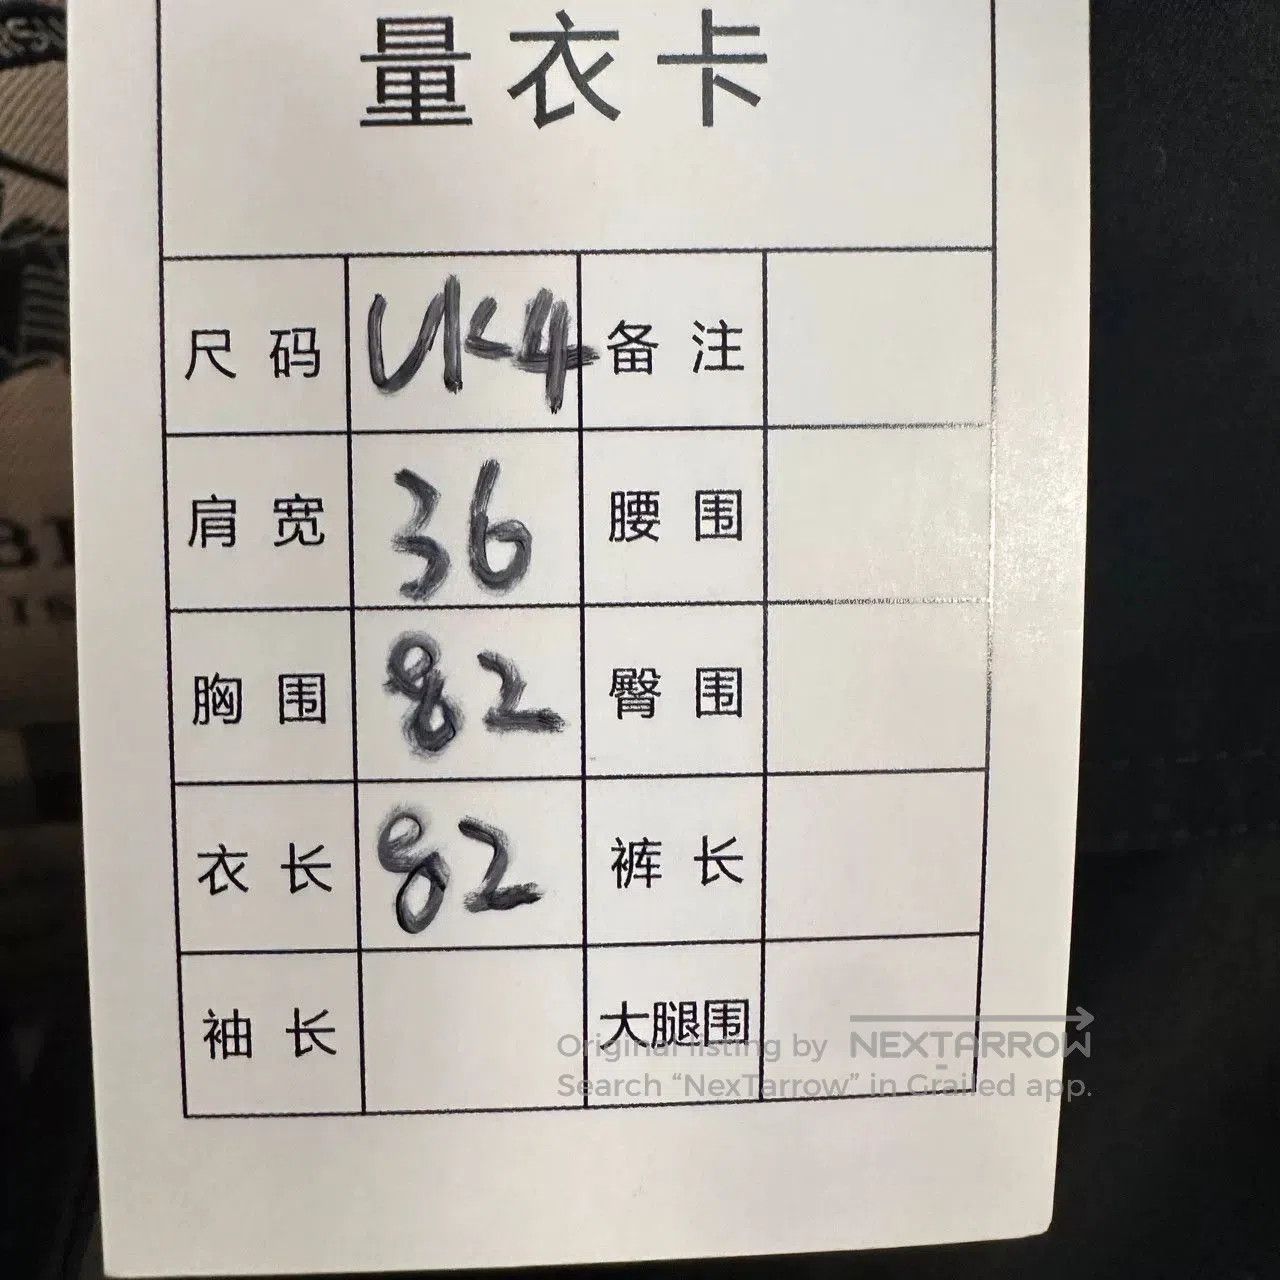 量衣卡
尺码 UK4 备注
肩宽 36 腰围
胸围 82 臀围
衣长 82 裤长
袖长 大腿围
Original listing by NEXTARROW
Search “NexTarrow” in Grailed app.